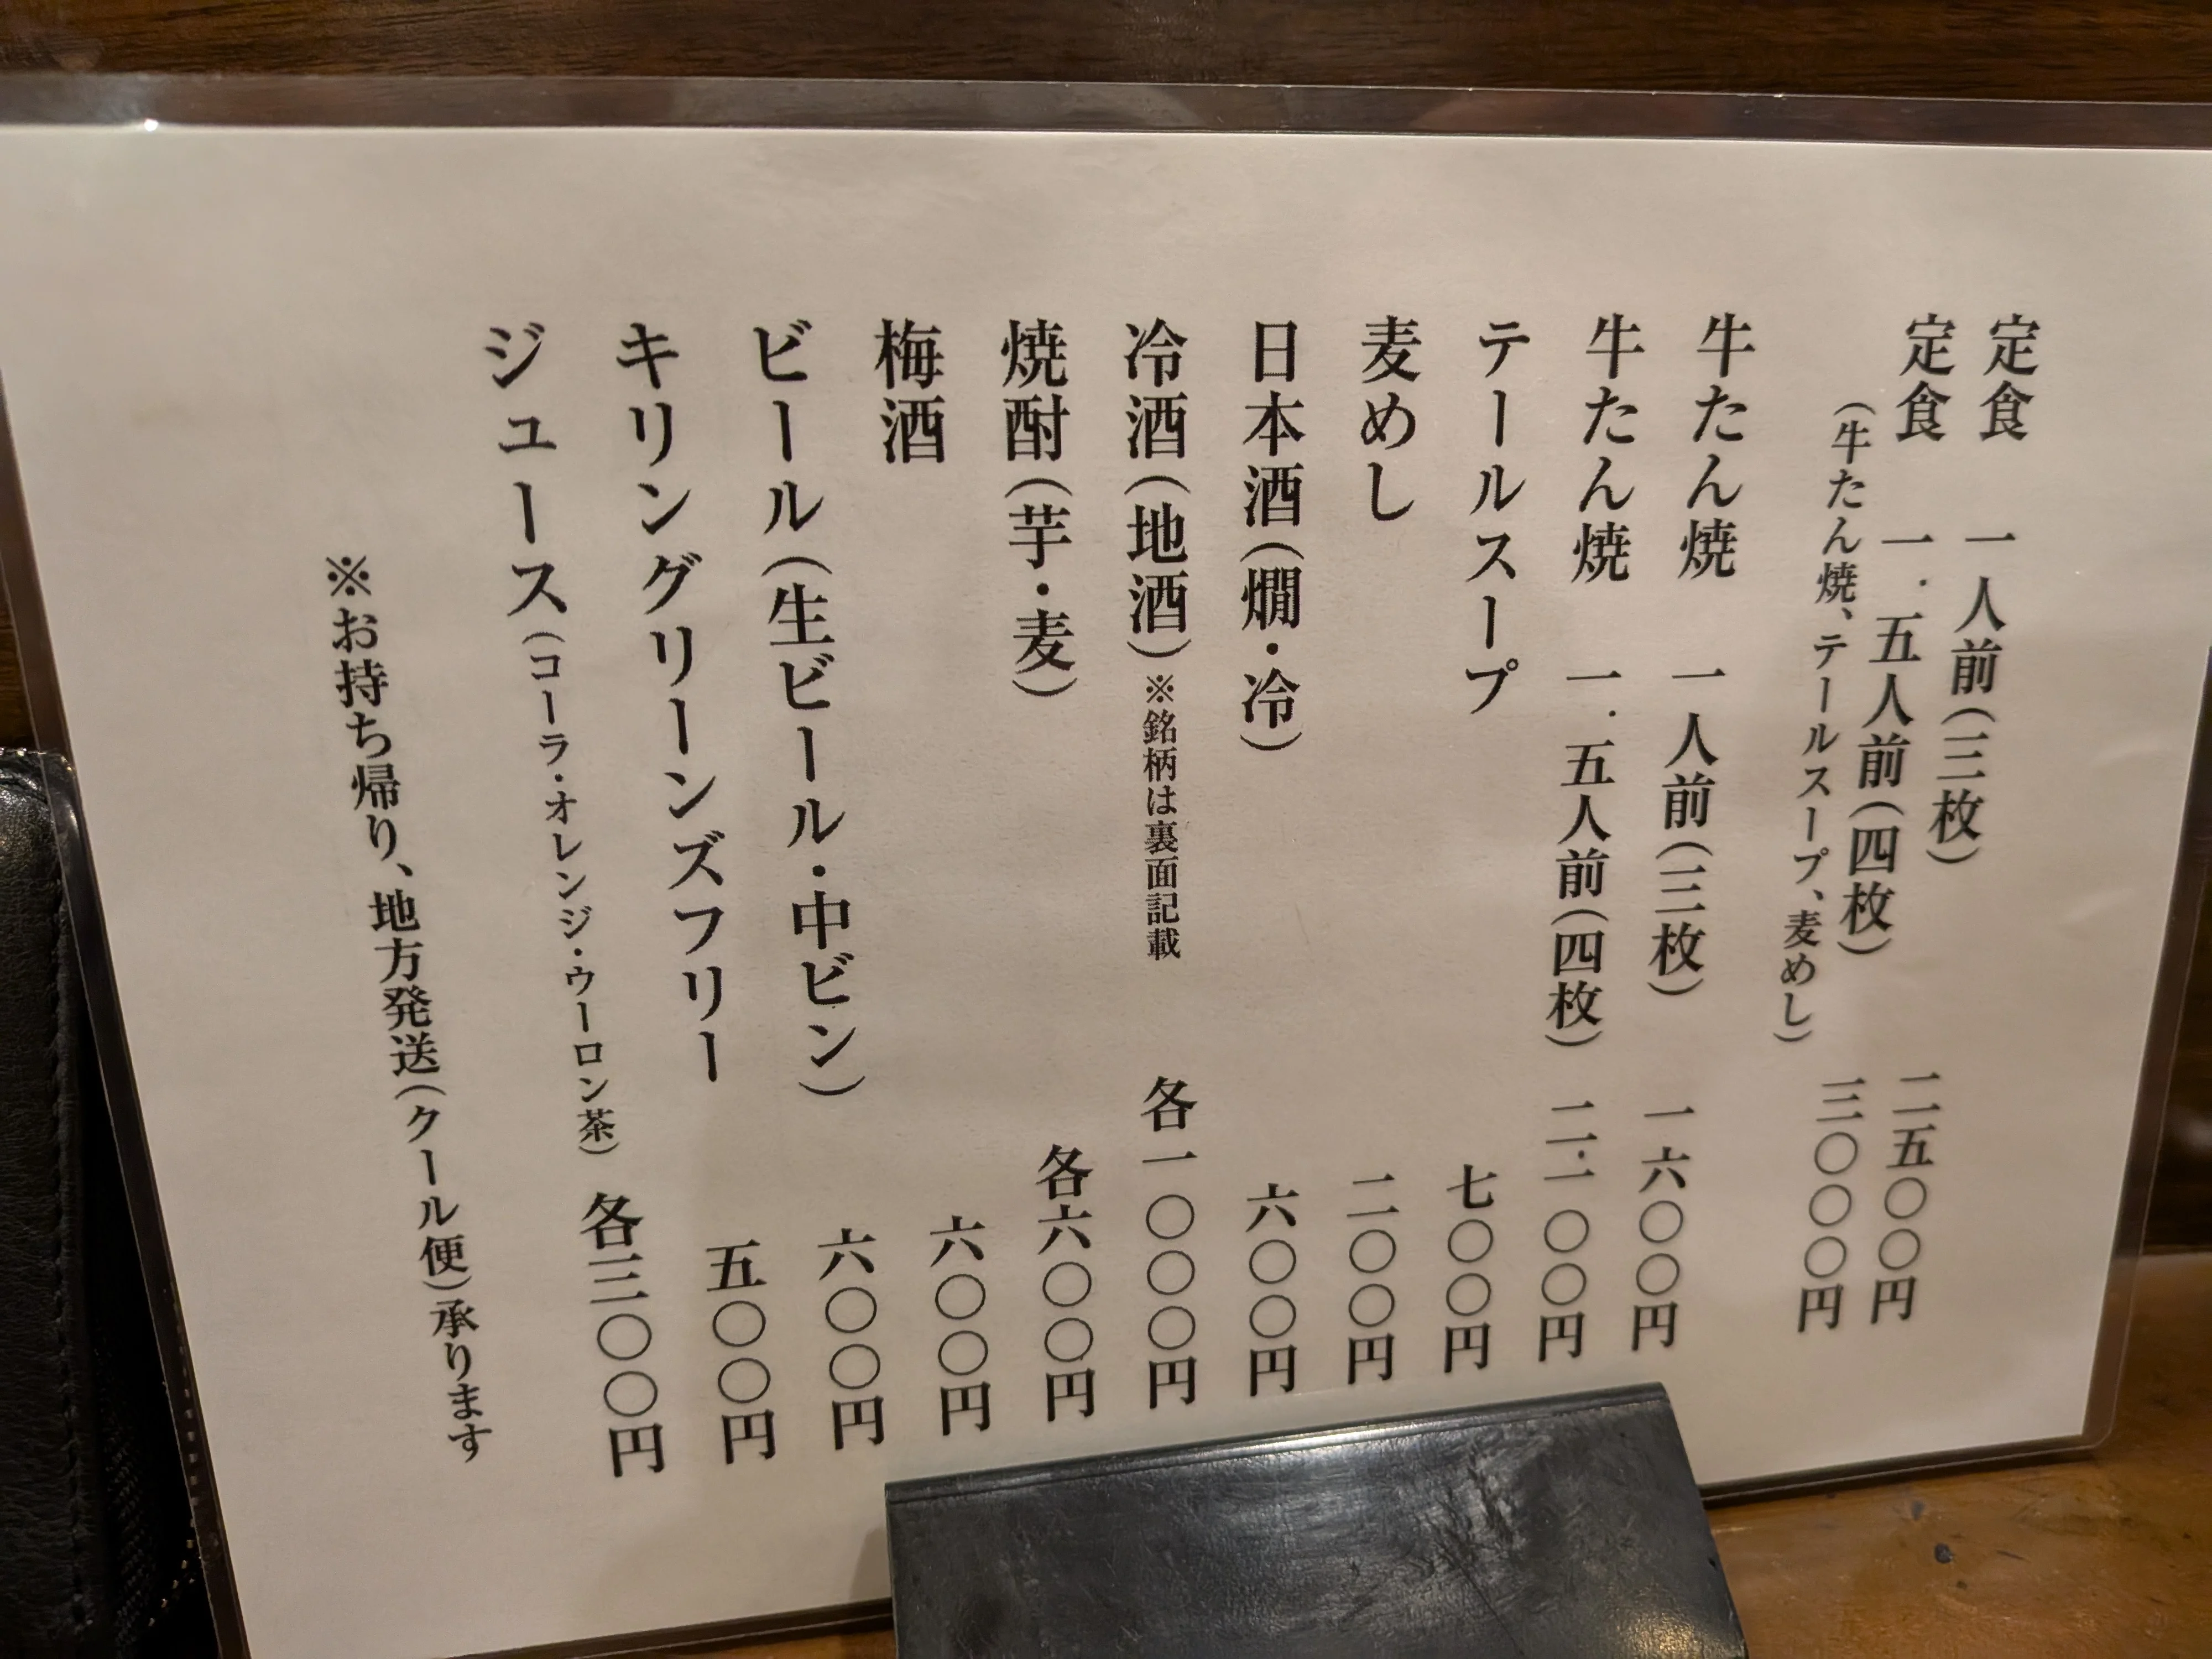 定食　一人前(三枚)　二五〇〇円
定食　一.五人前(四枚)　三〇〇〇円
(牛たん焼、テールスープ、麦めし)
牛たん焼　一人前(三枚)　一六〇〇円
牛たん焼　一.五人前(四枚)　二.一〇〇円
テールスープ　七〇〇円
麦めし　二〇〇円
日本酒(燗・冷)　六〇〇円
冷酒(地酒)※銘柄は裏面記載　各一〇〇〇円
焼酎(芋・麦)　各六〇〇円
梅酒　六〇〇円
ビール(生ビール・中ビン)　六〇〇円
キリングリーンズフリー　五〇〇円
ジュース(コーラ・オレンジ・ウーロン茶)　各三〇〇円
※お持ち帰り、地方発送(クール便)承ります